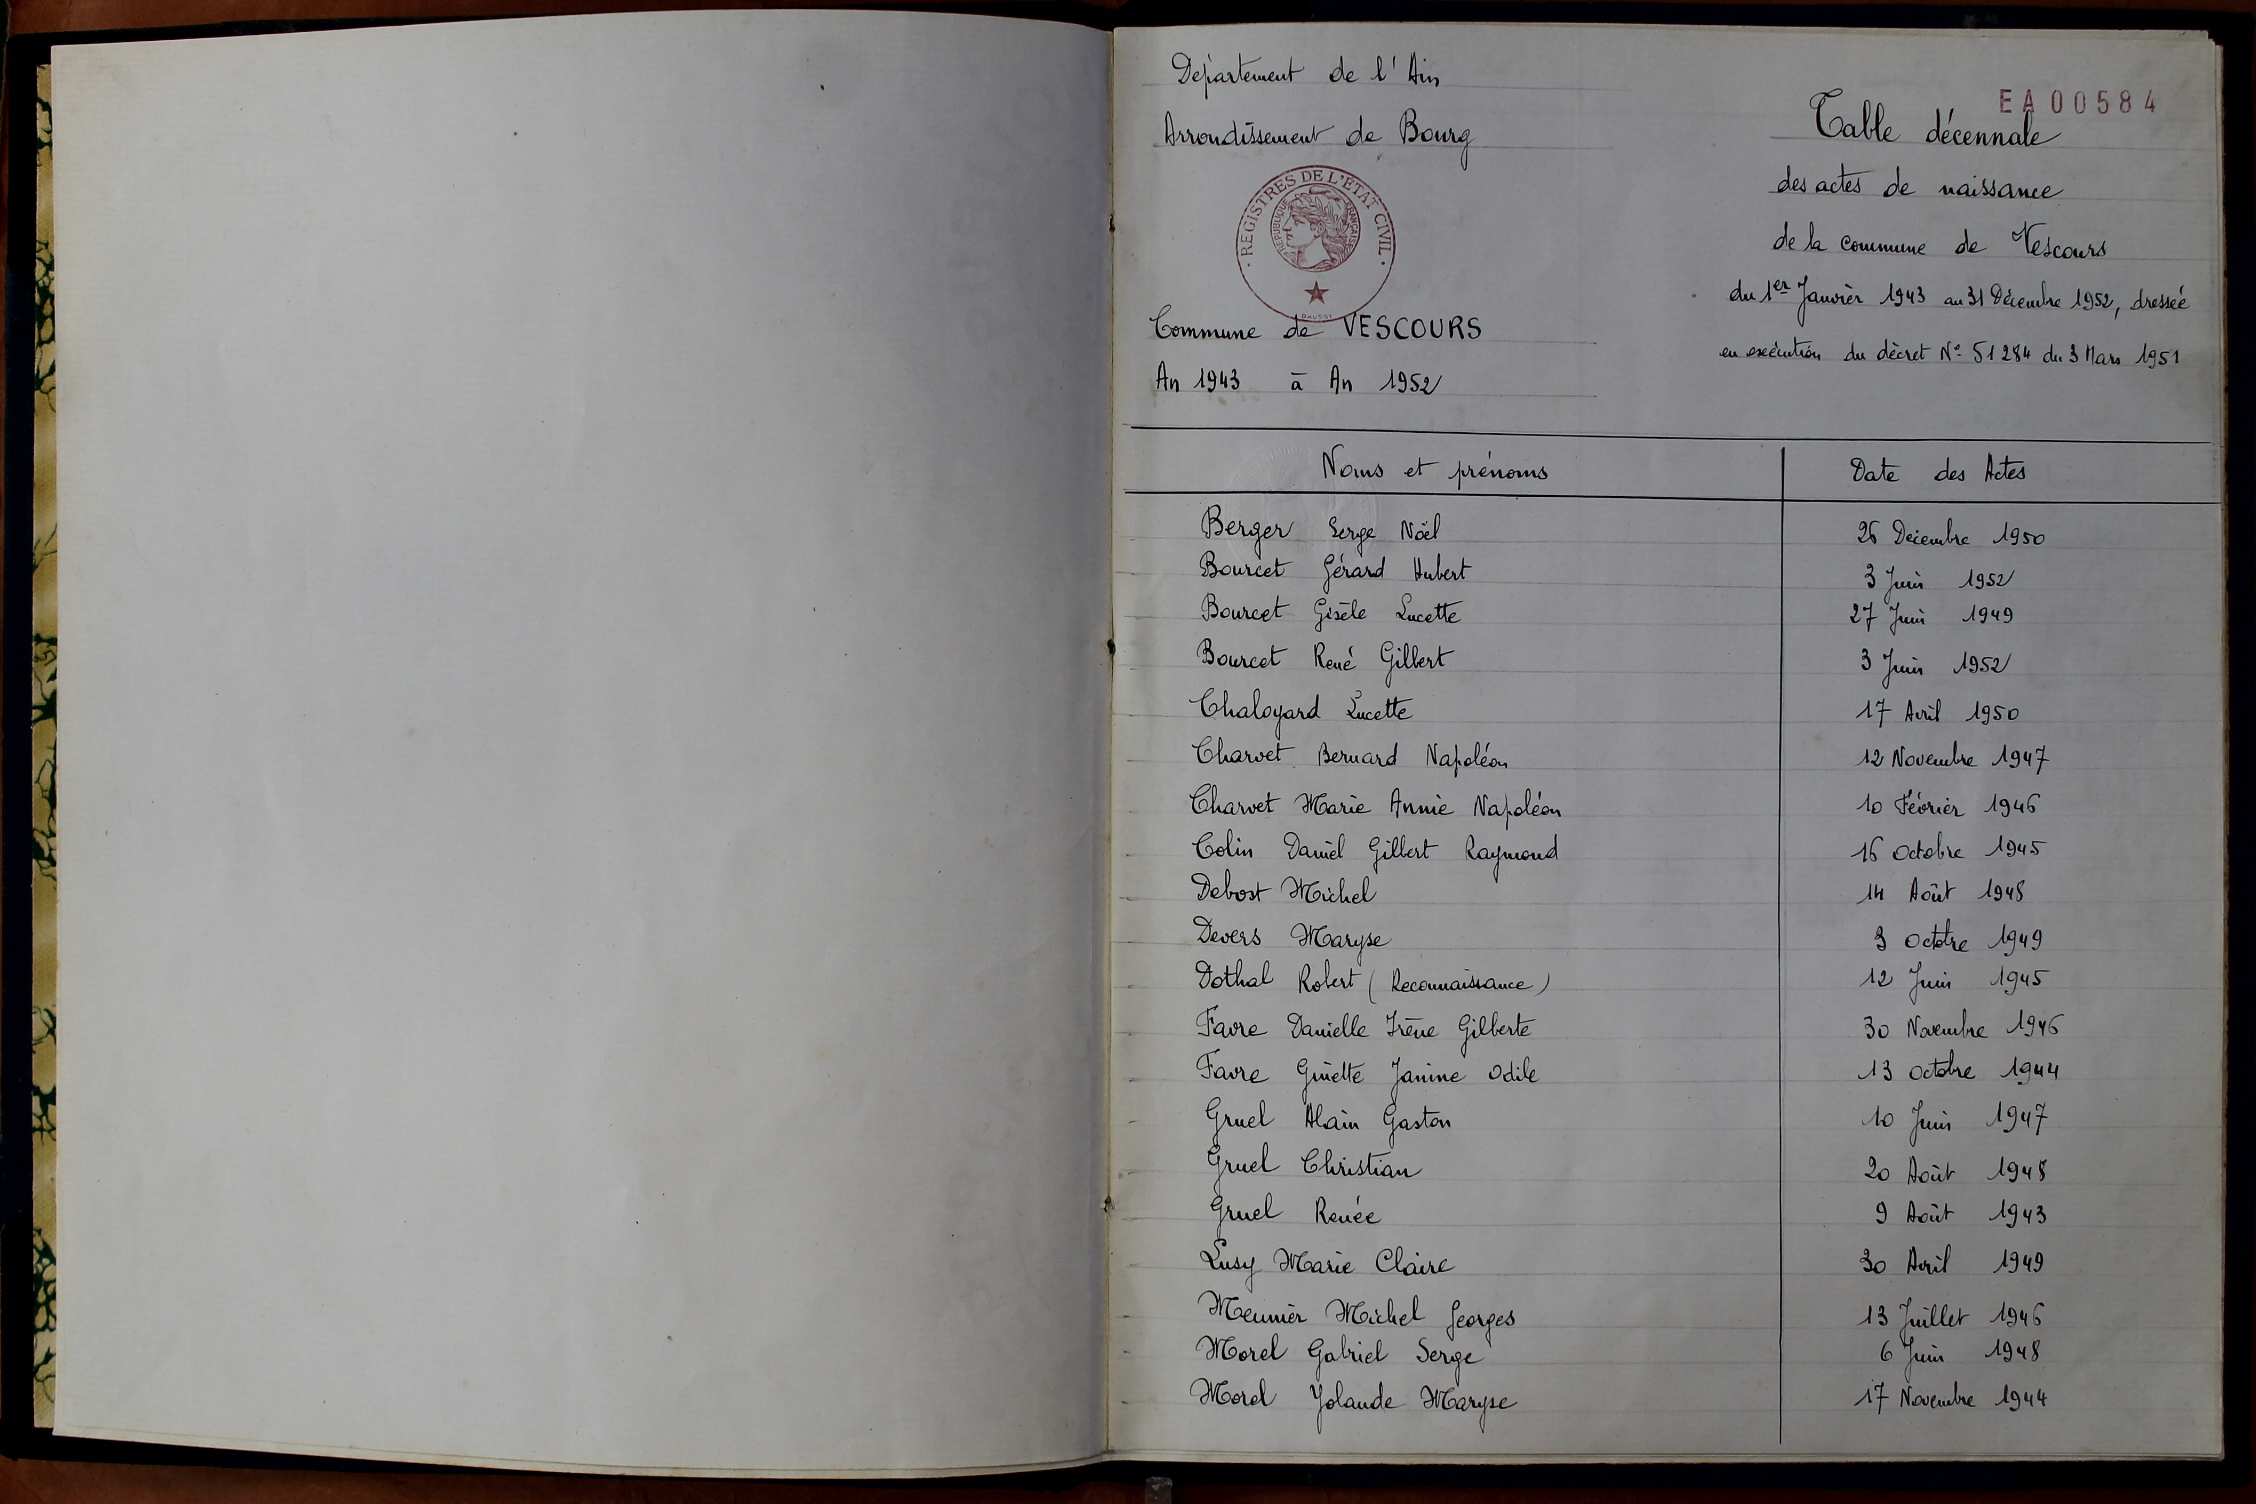 Département de l'Ain
Arrondissement de Bourg
REGISTRES DE L'ÉTAT CIVIL
RÉPUBLIQUE FRANÇAISE
Commune de VESCOURS
An 1943 à An 1952
EA00584
Table décennale
des actes de naissance
de la commune de Vescours
du 1er Janvier 1943 au 31 Décembre 1952, dressée
en exécution du décret N° 51 284 du 3 Mars 1951
Noms et prénoms Date des Actes
Berger Serge Noël 26 Décembre 1950
Bourcet Gérard Hubert 3 Juin 1952
Bourcet Gisèle Lucette 27 Juin 1949
Bourcet René Gilbert 3 Juin 1952
Chaloyard Lucette 17 Avril 1950
Charvet Bernard Napoléon 12 Novembre 1947
Charvet Marie Annie Napoléon 10 Février 1946
Colin Daniel Gilbert Raymond 16 Octobre 1945
Debost Michel 14 Août 1948
Devers Maryse 3 Octobre 1949
Dothal Robert (Reconnaissance) 12 Juin 1945
Favre Danielle Irène Gilberte 30 Novembre 1946
Favre Ginette Janine Odile 13 Octobre 1944
Gruel Alain Gaston 10 Juin 1947
Gruel Christian 20 Août 1948
Gruel Renée 9 Août 1943
Lusy Marie Claire 30 Avril 1949
Meunier Michel Georges 13 Juillet 1946
Morel Gabriel Serge 6 Juin 1948
Morel Yolande Maryse 17 Novembre 1944